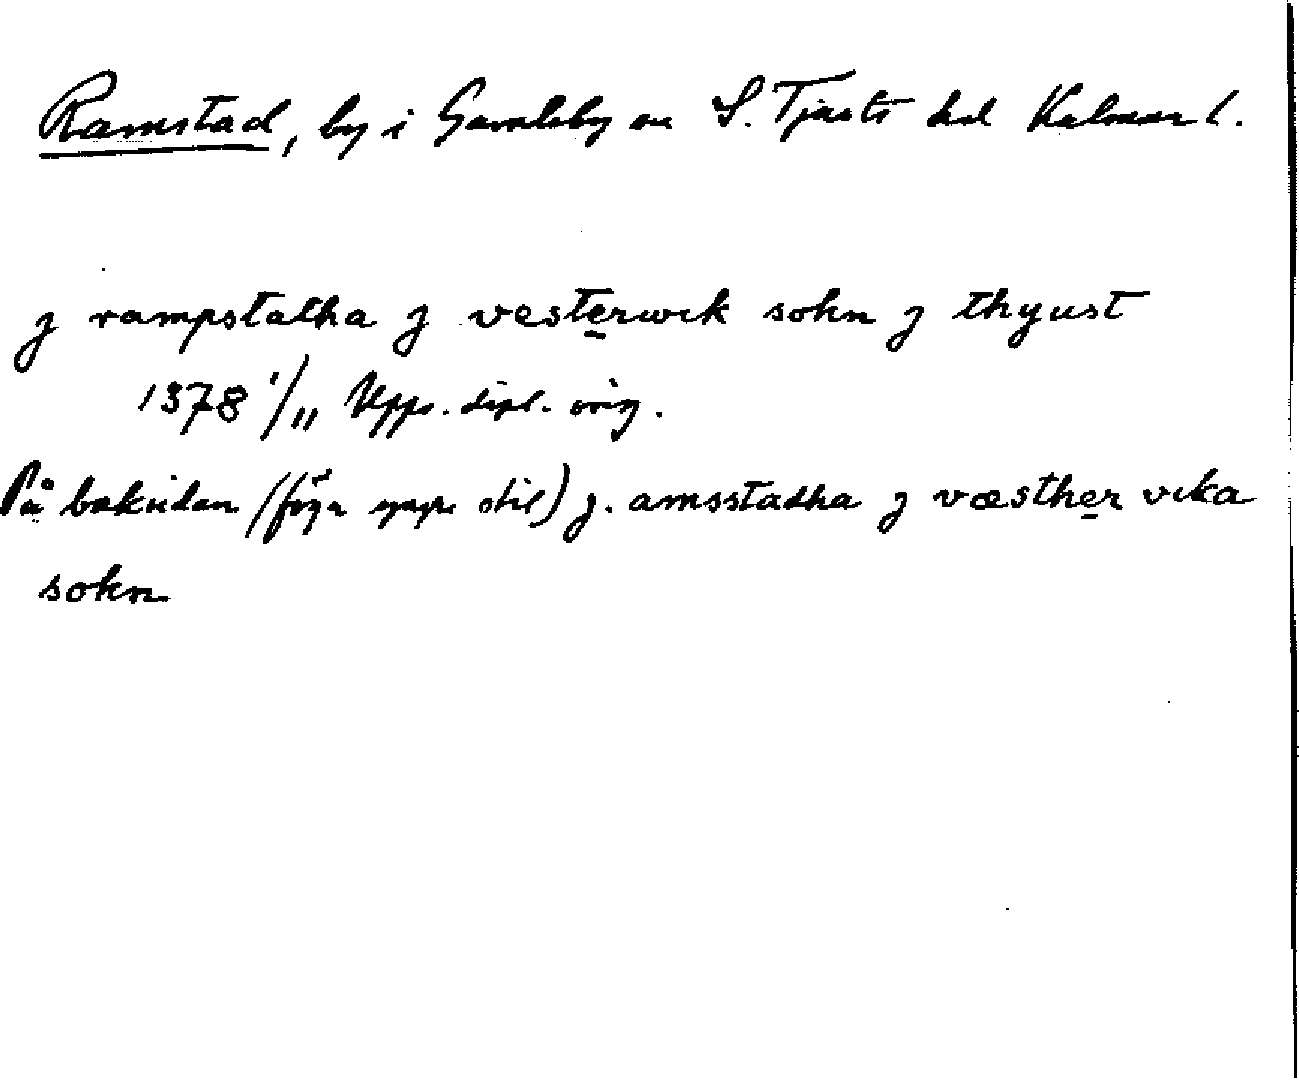 Ramstad, by i Gamleby sn S. Tjusts hd Kalmar l.
j rampstatha j vesterwik sokn j thyust
1378 1/11 Upps. dipl. orig.
På baksidan (föga yngre stil) j. amsstadha j væsther vika
sokn